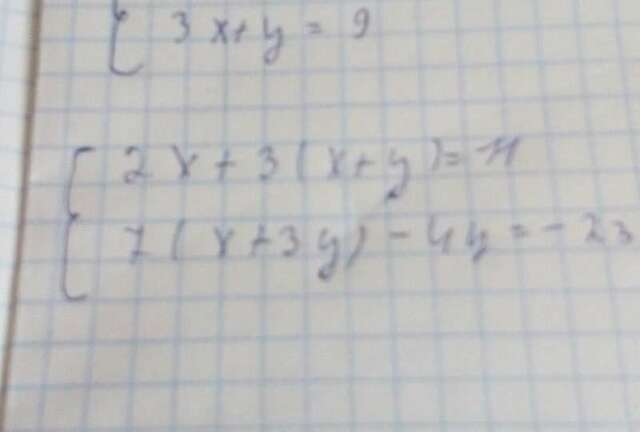 3x+y=9
2x+3(x+y)=11
7(x+3y)-4y=-23